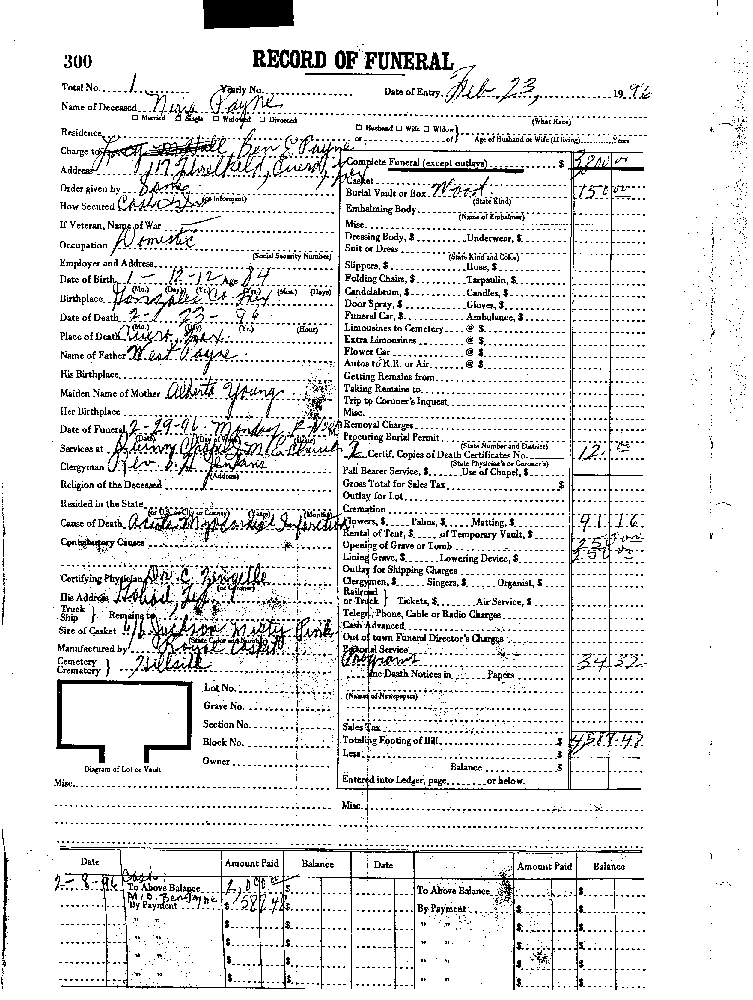 300
RECORD OF FUNERAL
Total No. 1 Yearly No. Date of Entry Feb. 23, 1996
Name of Deceased Payne
☐ Married ☐ Single ☐ Widowed ☐ Divorced
(What Race)
Residence ☐ Husband ☐ Wife ☐ Widow
or of Age of Husband or Wife (if living) Years
Charge to Ben C Payne
Address Cuero,
Order given by Same
(or Informant)
How Secured
If Veteran, Name of War
Occupation Domestic
(Social Security Number)
Employer and Address
Date of Birth 1-12-12 Age 84
(Mo.) (Day) (Yr.) (Yrs.) (Mos.) (Days)
Birthplace Gonzales Co.
Date of Death 2-23-96
(Mo.) (Day) (Yr.) (Hour)
Place of Death Cuero, Tex.
Name of Father West Payne
His Birthplace
Maiden Name of Mother Alberta Young
Her Birthplace
Date of Funeral Monday
(Date) (Day of Week) (Hour)
Services at
Clergyman Rev.
(Address)
Religion of the Deceased
Resided in the State
(or U.S. or City or County) (Years) (Months)
Cause of Death Acute Myocardial Infarction
Contributory Causes
Certifying Physician Dr. C.
(or Coroner)
His Address
Truck
Ship } Remains to
Size of Casket Misty Pink
(State Color and Number)
Manufactured by Casket
Cemetery
Crematory } Hillside
Lot No.
Grave No.
Section No.
Block No.
Owner
Diagram of Lot or Vault
Misc.
Complete Funeral (except outlays) $ 3800 00
Casket
Burial Vault or Box Wood 150 00
(State Kind)
Embalming Body
(Name of Embalmer)
Misc.
Dressing Body, $ Underwear, $
Suit or Dress
(State Kind and Color)
Slippers, $ Hose, $
Folding Chairs, $ Tarpaulin, $
Candelabrum, $ Candles, $
Door Spray, $ Gloves, $
Funeral Car, $ Ambulance, $
Limousines to Cemetery @ $
Extra Limousines @ $
Flower Car @ $
Autos to R.R. or Air @ $
Getting Remains from
Taking Remains to
Trip to Coroner's Inquest
Misc.
Removal Charges
Procuring Burial Permit
(State Number and District)
Certif. Copies of Death Certificates No. 12.00
(State Physician's or Coroner's)
Pall Bearer Service, $ Use of Chapel, $
Gross Total for Sales Tax $
Outlay for Lot
Cremation
Flowers, $ Palms, $ Matting, $ 91 16
Rental of Tent, $ of Temporary Vault, $
Opening of Grave or Tomb 250 00
Lining Grave, $ Lowering Device, $ 250 00
Outlay for Shipping Charges
Clergymen, $ Singers, $ Organist, $
Railroad
or Truck } Tickets, $ Air Service, $
Telegr., Phone, Cable or Radio Charges
Cash Advanced
Out of town Funeral Director's Charges
Personal Service
Programs 34 32
Death Notices in Papers
(Names of Newspapers)
Sales Tax
Totaling Footing of Bill $ 4587.48
Less $
Balance $
Entered into Ledger, page or below.
Misc.
Date Amount Paid Balance Date Amount Paid Balance
2-8-96 Cash
To Above Balance $ To Above Balance $
M.O. Ben Payne
By Payment $ $ By Payment $ $
" " $ $ " " $ $
" " $ $ " " $ $
" " $ $ " " $ $
" " $ $ " " $ $